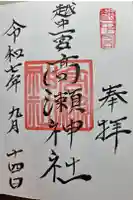 奉拝
越中一宮高瀬神社
令和七年九月十四日